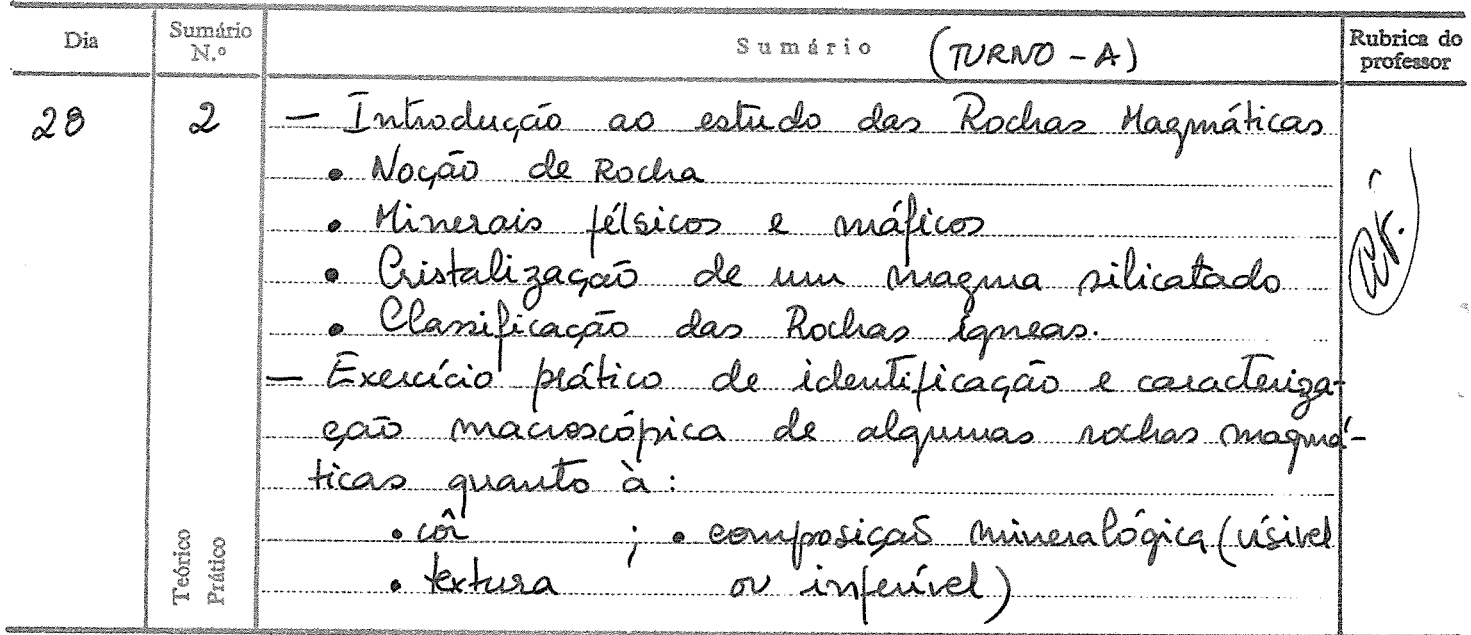 Dia
Sumário N.º
Sumário (TURNO - A)
Rubrica do professor
28
2
— Introdução ao estudo das Rochas Magmáticas
• Noção de Rocha
• Minerais félsicos e máficos
• Cristalização de um magma silicatado
• Classificação das Rochas ígneas.
— Exercício prático de identificação e caracteriza-
ção macroscópica de algumas rochas magmá-
ticas quanto à:
• côr ; • composição mineralógica (vísivel
• textura ou inferível)
Teórico
Prático